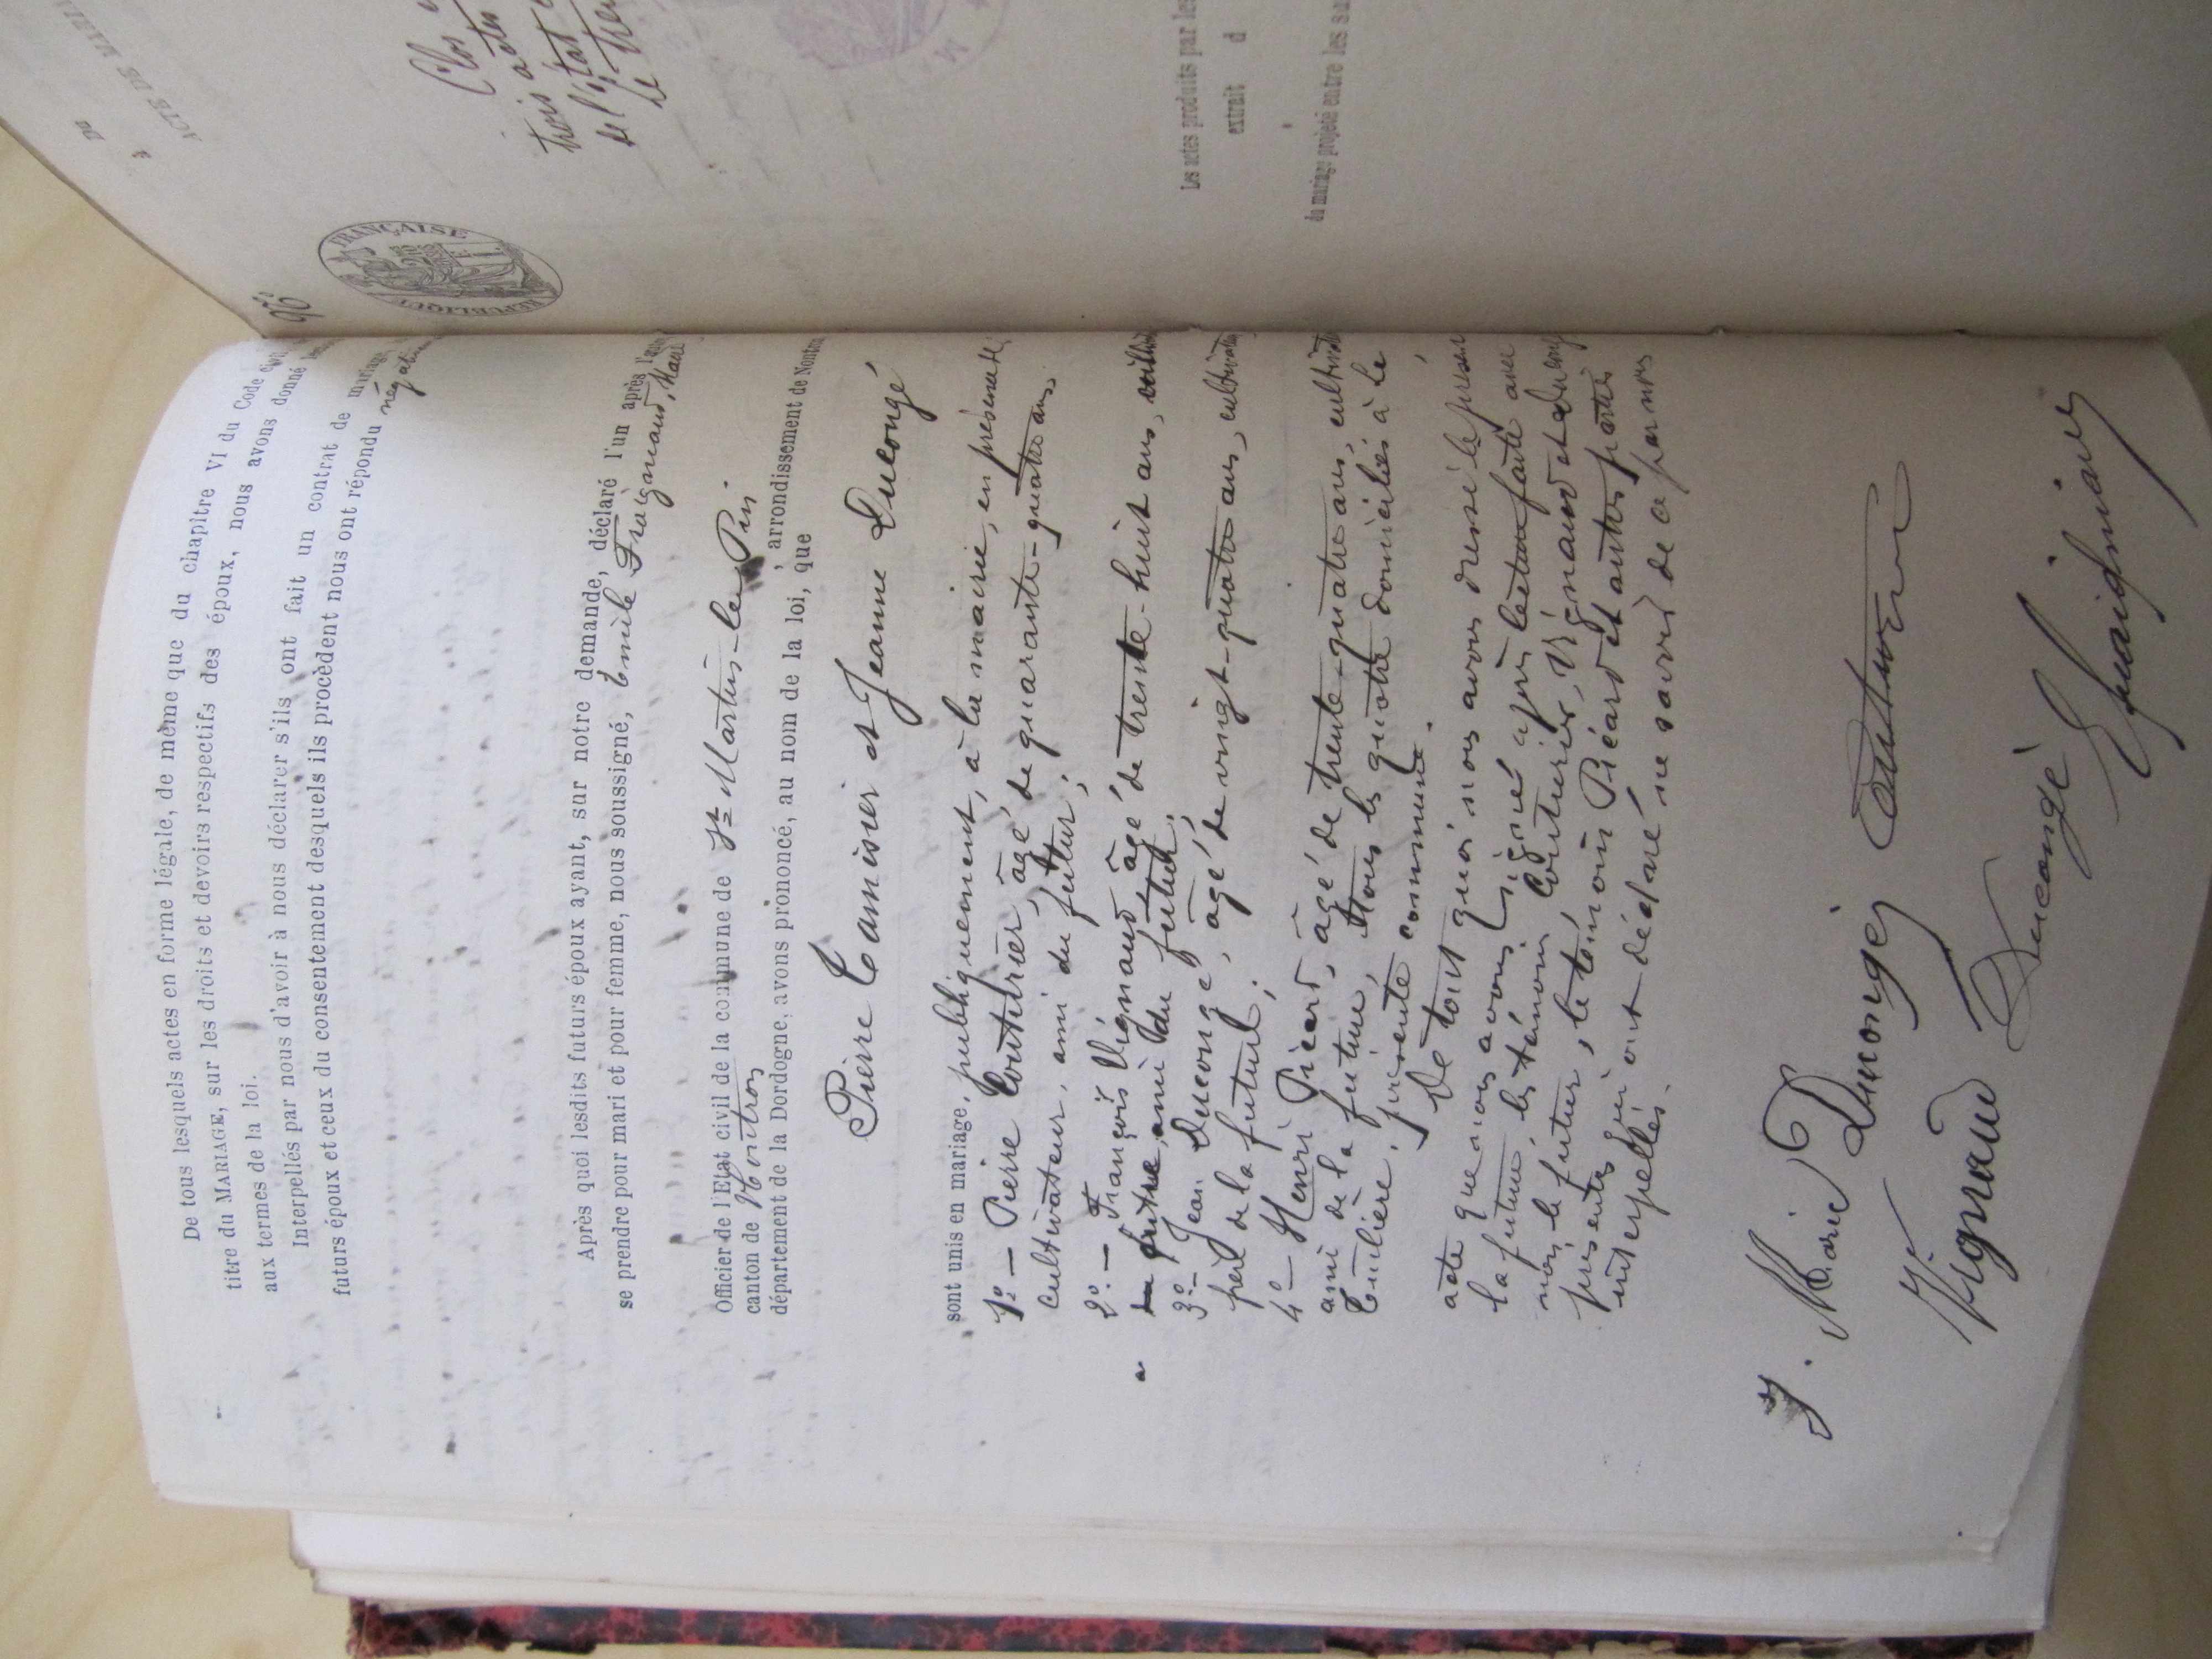 De tous lesquels actes en forme légale, de même que du chapître VI du Code civil
titre du MARIAGE, sur les droits et devoirs respectifs des époux, nous avons donné
aux termes de la loi.
Interpellés par nous d'avoir à nous déclarer s'ils ont fait un contrat de mariage,
futurs époux et ceux du consentement desquels ils procèdent nous ont répondu
Après quoi lesdits futurs époux ayant, sur notre demande, déclaré l'un après l'autre
se prendre pour mari et pour femme, nous soussigné, Emile Fraigniaud, Maire
Officier de l'Etat civil de la commune de St Martin-le-Pin
canton de Nontron, arrondissement de Nontron
département de la Dordogne, avons prononcé, au nom de la loi, que
Pierre Tamisier et Jeanne Ducongé
sont unis en mariage, publiquement, à la mairie, en présence de
1º - Pierre Couturier, âgé de quarante-quatre ans,
cultivateur, ami du futur;
2º. - François Vignaud, âgé de trente-huit ans,
ami du futur;
3º - Jean Ducongé, âgé de vingt-quatre ans, cultivateur
de la future;
4º - Henri Picard, âgé de trente-quatre ans,
ami de la future, tous les quatre domiciliés à La
Tuilière, présente commune.
De tout quoi nous avons dressé le présent
acte que nous avons signé après lecture faite avec
la future, les témoins Couturier, Vignaud et
non le futur, le témoin Picard et autres parties
présentes qui ont déclaré ne savoir de ce par nous
interpellés.
J. Marie Ducongé Couturier
Vignaud Ducongé
E Fraigniaud
96
DE
ACTE DE
RÉPUBLIQUE FRANÇAISE
Clos
trois actes
de l'état
Le
Les actes produits par les
extrait d
du mariage projeté entre les